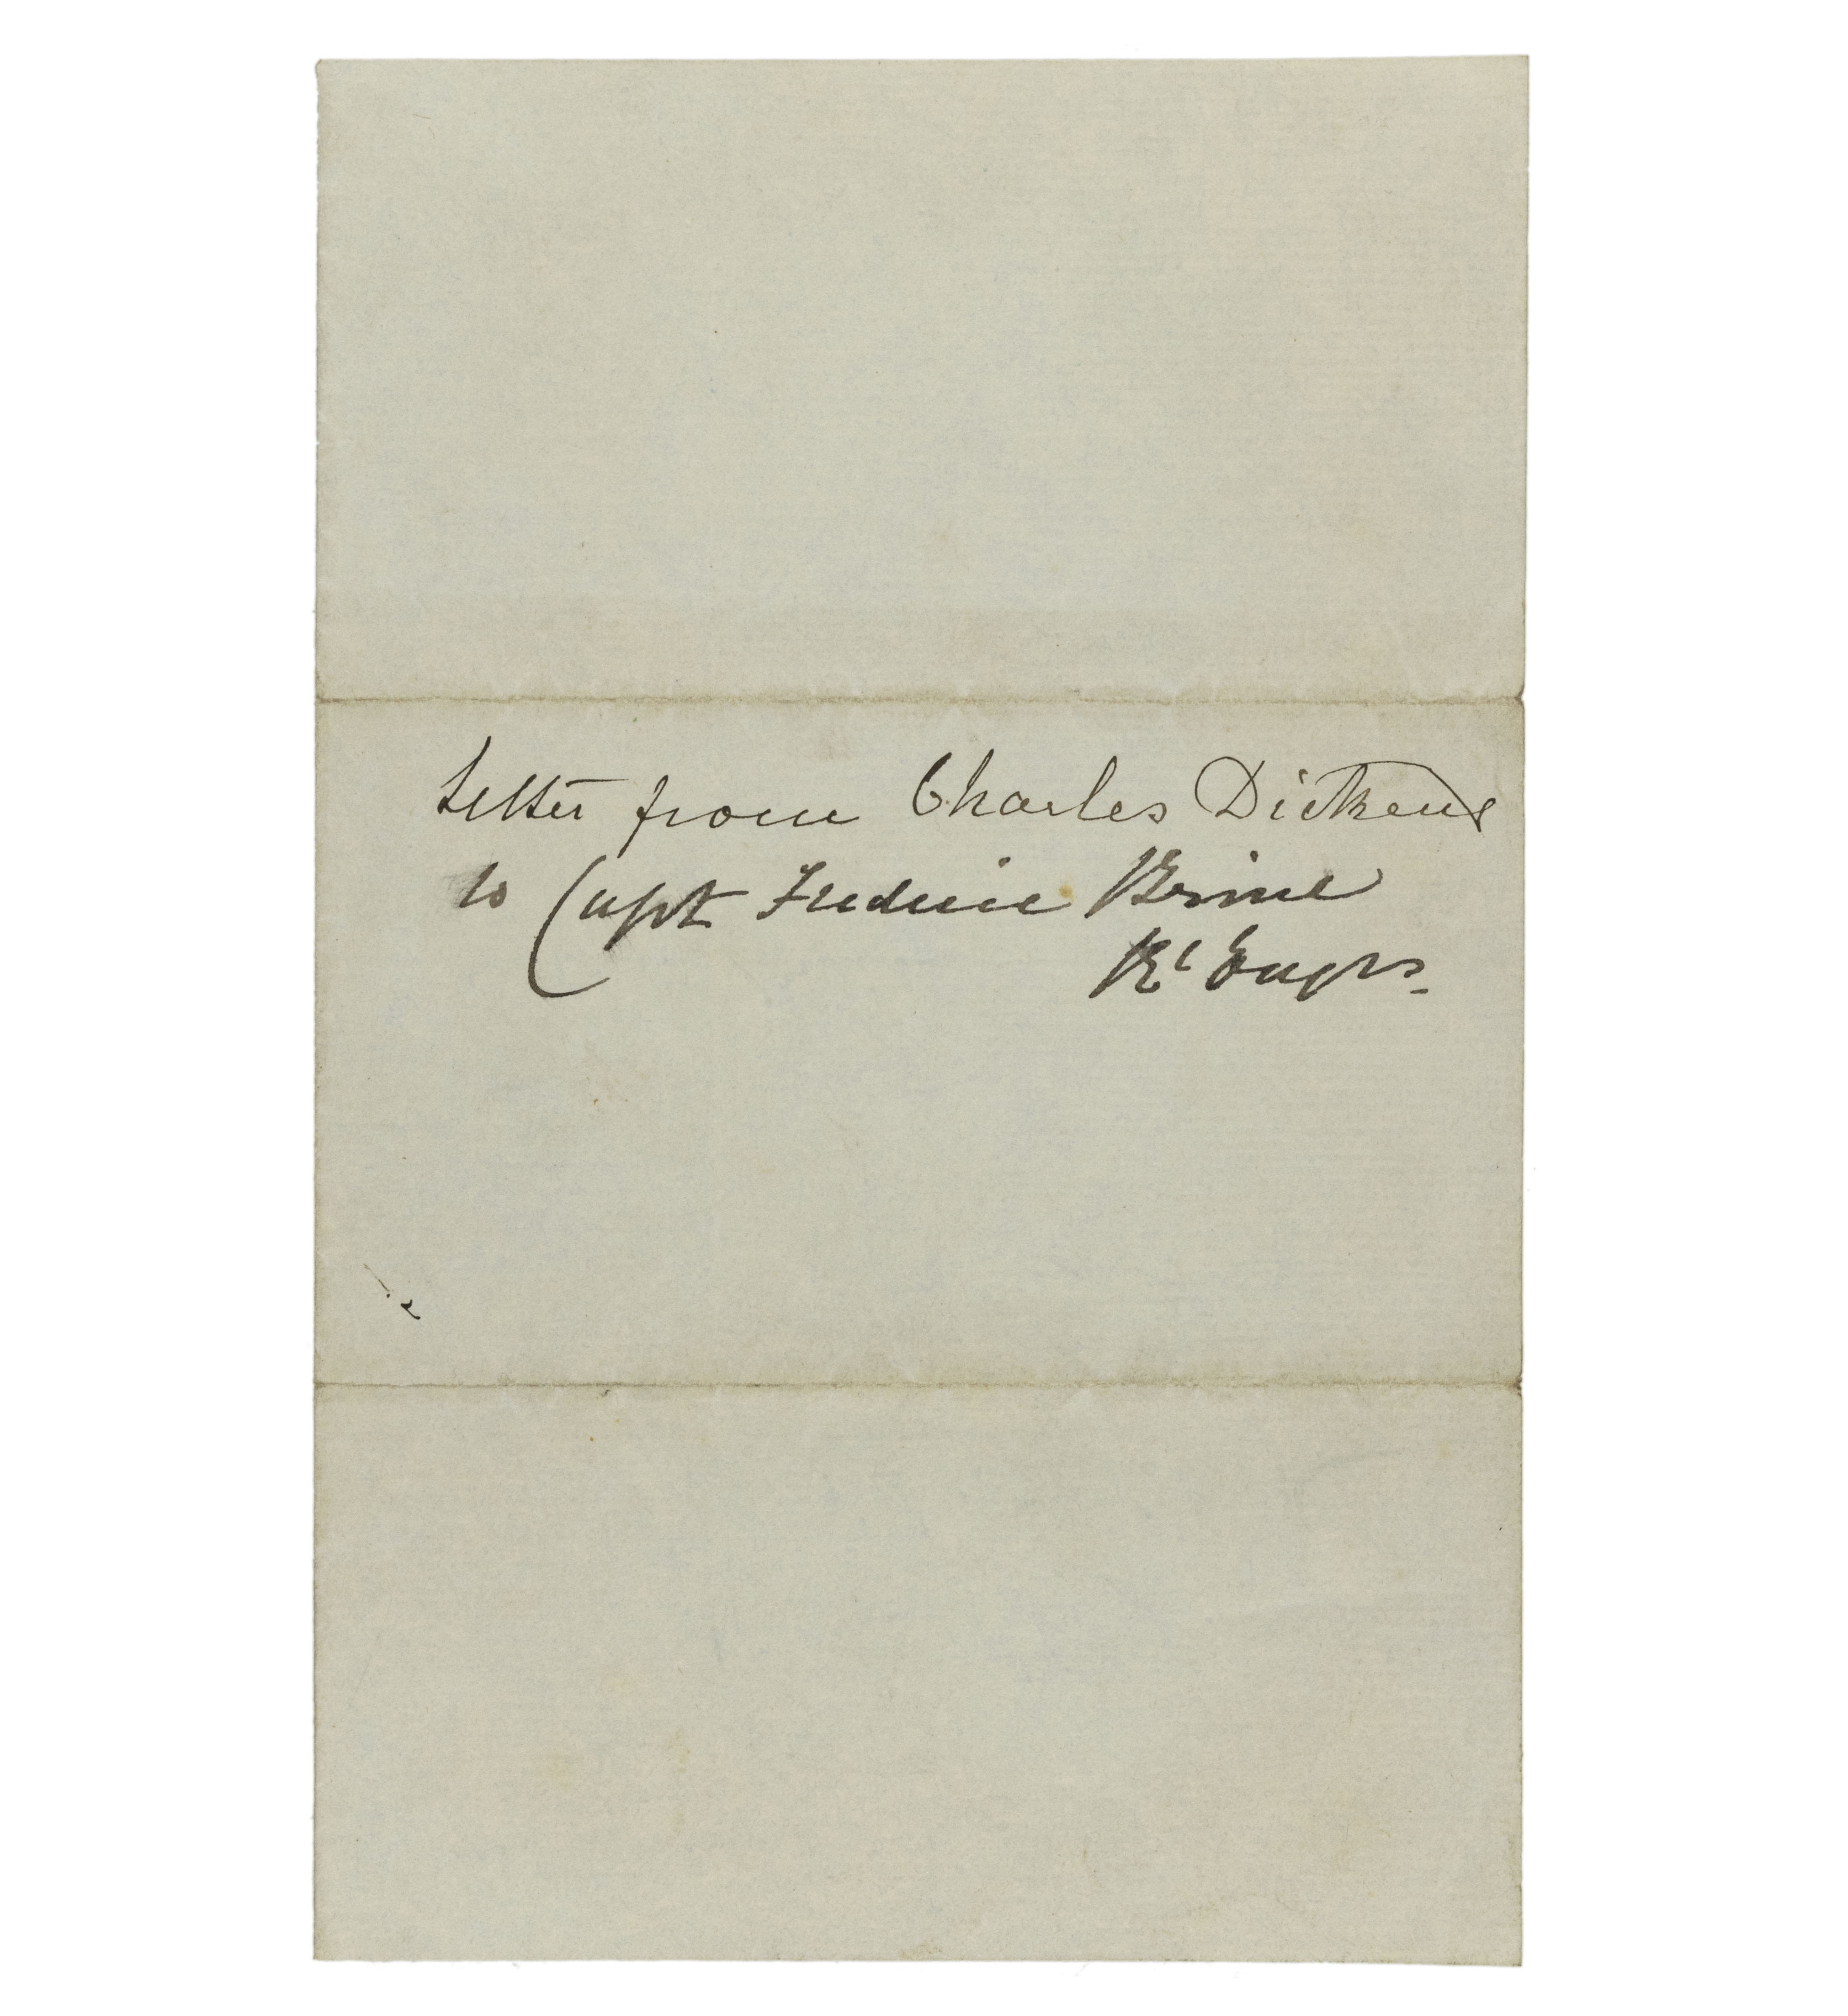 Letter from Charles Dickens
to Capt Frederic Brine
Rl Engrs.